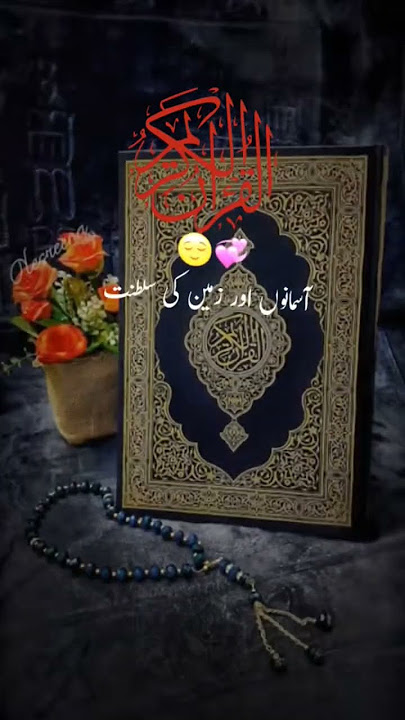 القرآن الكريم
آسمانوں اور زمین کی سلطنت
القرآن الكريم